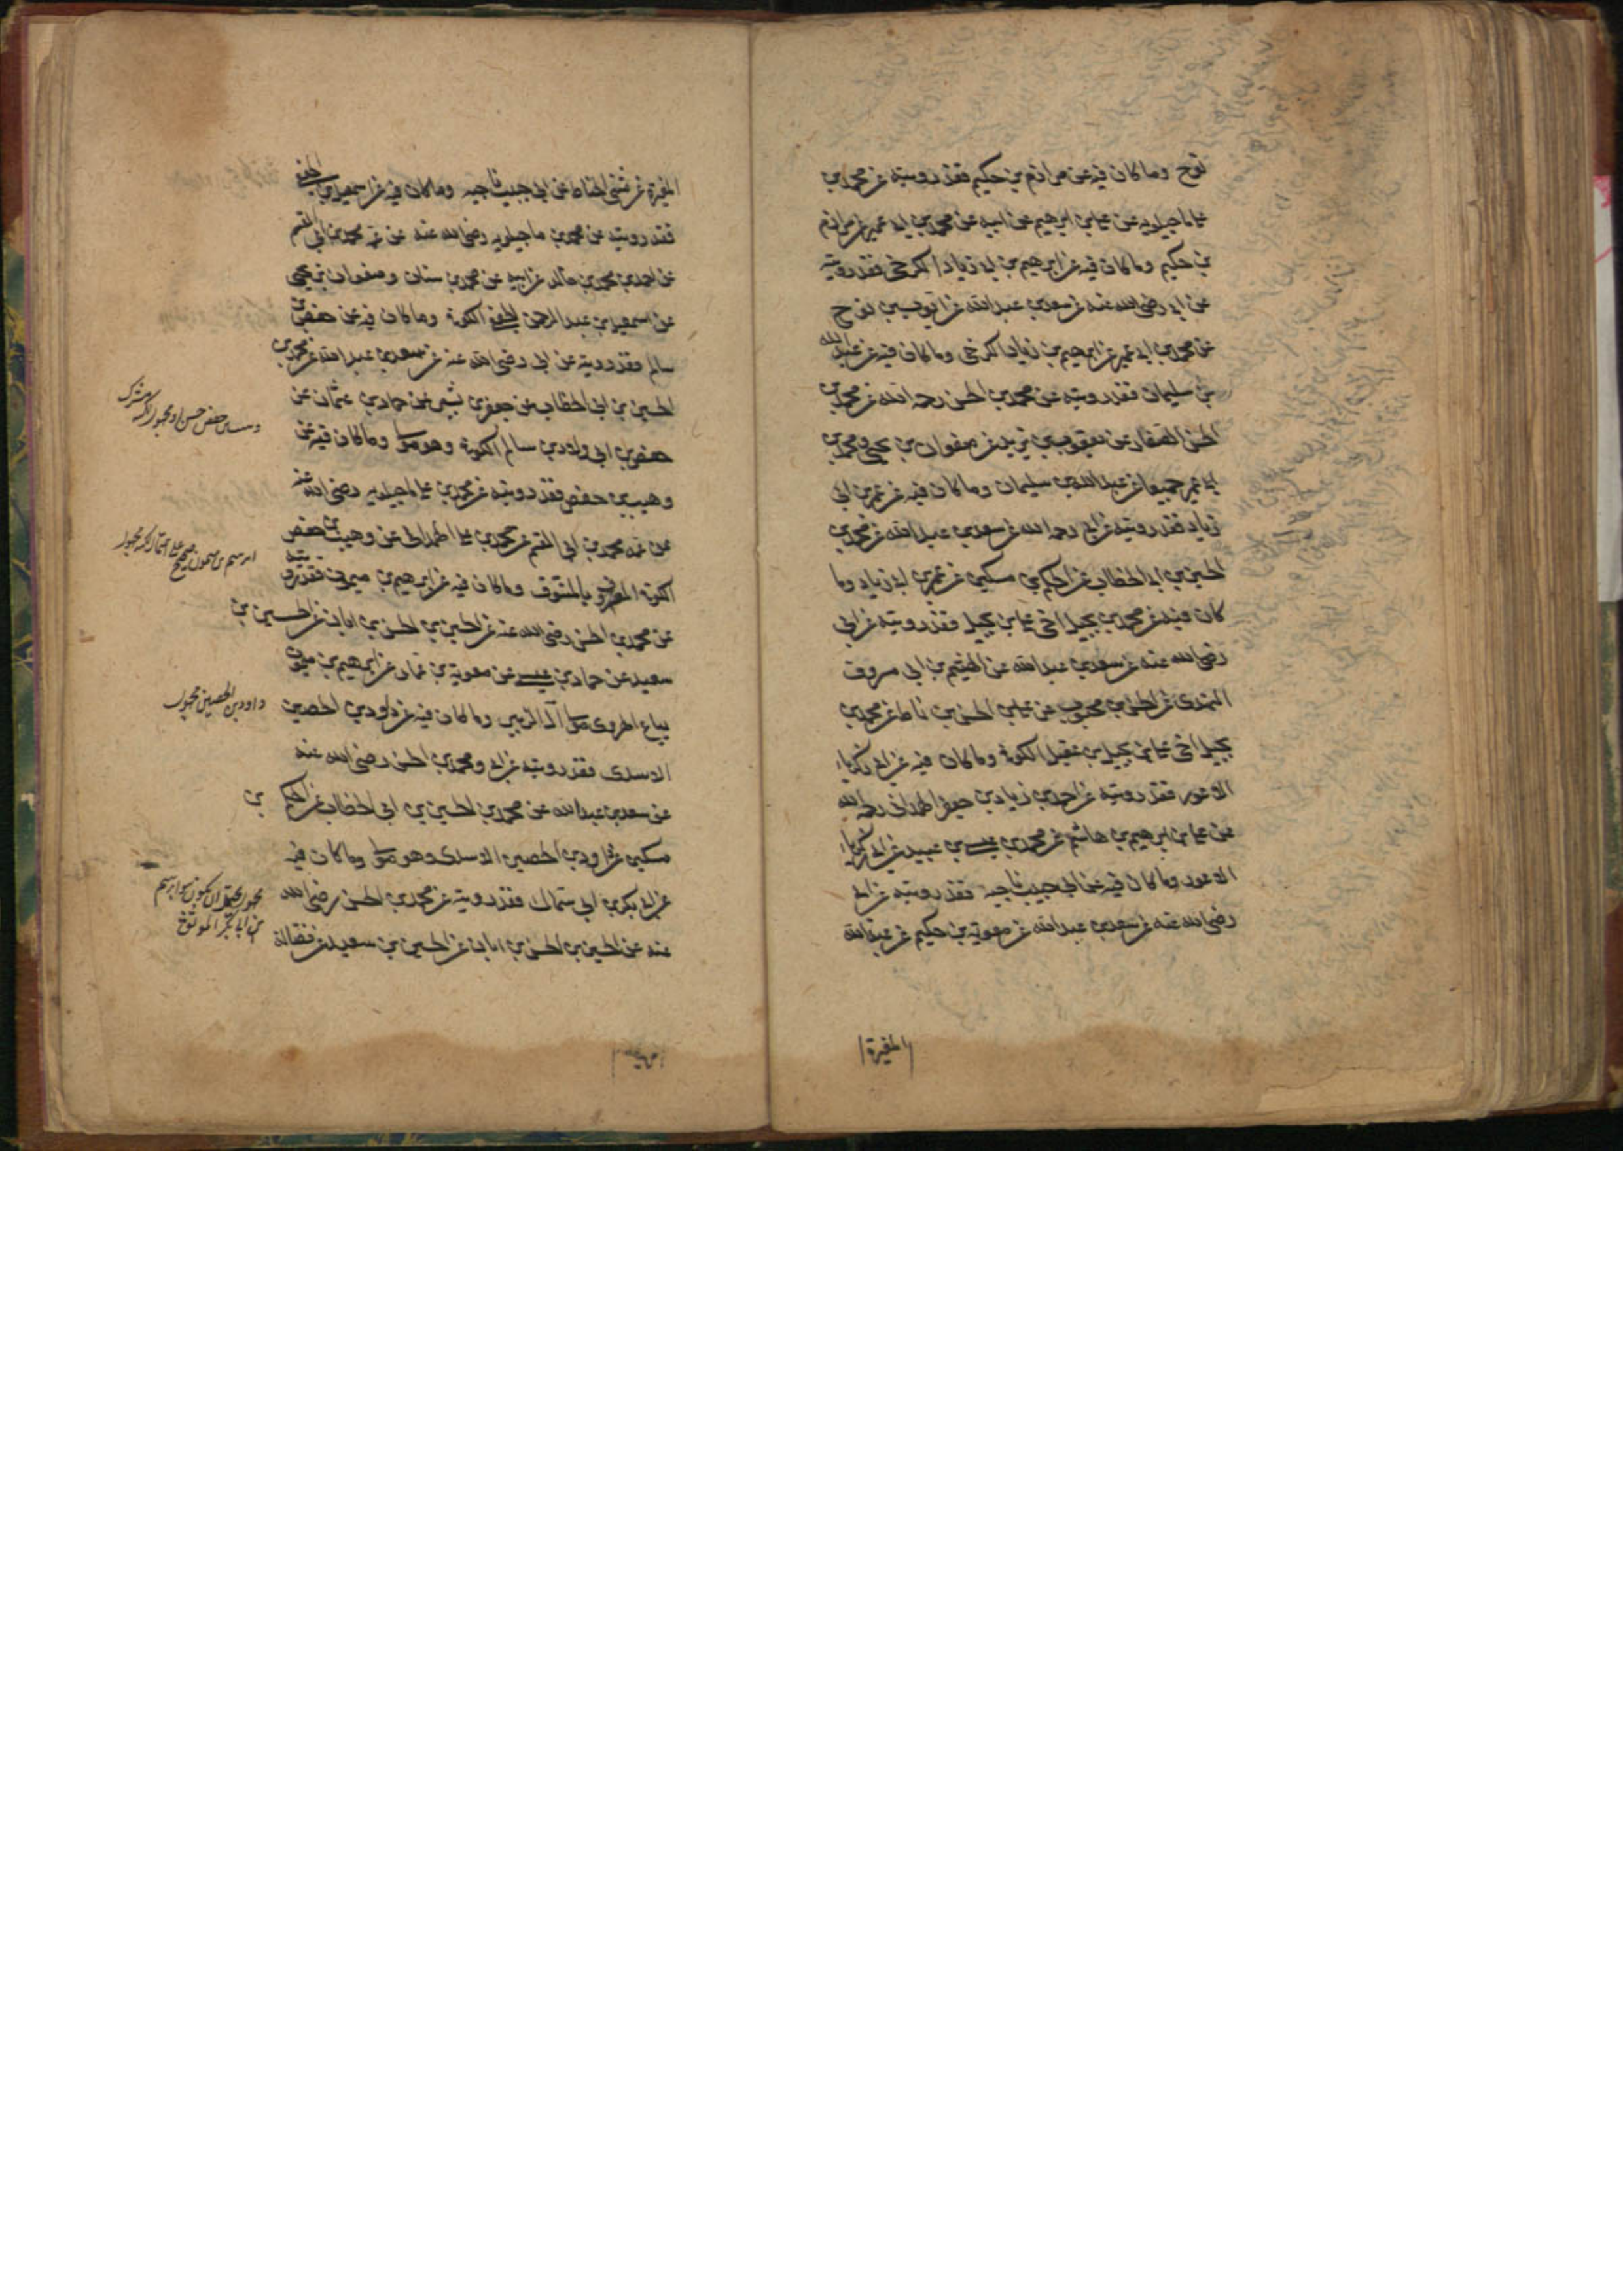 نوح وما كان فيه عن مرازم بن حكيم فقد رويته عن محمد بن
علي ماجيلويه عن علي بن ابرهيم عن ابيه عن محمد بن ابي عمير عن مرازم
بن حكيم وما كان فيه عن ابرهيم بن ابي زياد الكرخي فقد رويته
عن ابي رضي الله عنه عن سعد بن عبد الله عن ايوب بن نوح
عن محمد بن ابي عمير عن ابرهيم بن زياد الكرخي وما كان فيه عن عبد الله
بن سليمان فقد رويته عن محمد بن الحسن رحمه الله عن محمد بن
الحسن الصفار عن يعقوب بن يزيد عن صفوان بن يحيى ومحمد بن
ابي عمير جميعا عن عبد الله بن سليمان وما كان فيه عن عمر بن ابي
زياد فقد رويته عن ابي رحمه الله عن سعد بن عبد الله عن محمد بن
الحسين بن ابي الخطاب عن الحكم بن مسكين عن عمر بن ابي زياد وما
كان فيه عن محمد بن بجيل اخي علي بن بجيل فقد رويته عن ابي
رضي الله عنه عن سعد بن عبد الله عن الهيثم بن ابي مسروق
النهدي عن الحسن بن محبوب عن علي بن الحسن بن رباط عن محمد بن
بجيل اخي علي بن بجيل بن عقيل الكوفي وما كان فيه عن ابي زكرياء
الاعور فقد رويته عن احمد بن زياد بن جعفر الهمداني رحمه الله
عن علي بن ابرهيم بن هاشم عن محمد بن عيسى بن عبيد عن ابي زكرياء
الاعور وما كان فيه عن ابي حبيب ناجيه فقد رويته عن ابي
رضي الله عنه عن سعد بن عبد الله عن معوية بن حكيم عن عبد الله
المغيرة
المغيرة عن مثنى الحناط عن ابي حبيب ناجيه وما كان فيه عن اسمعيل بن الجعفي
فقد رويته عن محمد بن ماجيلويه رضي الله عنه عن عمه محمد بن ابي القسم
عن احمد بن محمد بن خالد عن ابيه عن محمد بن سنان وصفوان بن يحيى
عن اسمعيل بن عبد الرحمن الجعفي الكوفي وما كان فيه عن حفص بن
سالم فقد رويته عن ابي رضي الله عنه عن سعد بن عبد الله عن محمد بن
الحسين بن ابي الخطاب عن جعفر بن بشير عن حماد بن عثمان عن
حفص بن ابي ولاد بن سالم الكوفي وهو مولى وما كان فيه عن
وهيب بن حفص فقد رويته عن محمد بن علي ماجيلويه رضي الله عنه
عن عمه محمد بن ابي القسم عن محمد بن علي الهمداني عن وهيب بن حفص
الكوفي المعروف بالمنتوف وما كان فيه عن ابرهيم بن ميمون فقد رويته
عن محمد بن الحسن رضي الله عنه عن الحسين بن الحسن بن ابان عن الحسين بن
سعيد عن حماد بن عيسى عن معوية بن عمار عن ابرهيم بن ميمون
بياع الهروي مولى آل الزبير وما كان فيه عن داود بن الحصين
الاسدي فقد رويته عن ابي ومحمد بن الحسن رضي الله عنه
عن سعد بن عبد الله عن محمد بن الحسين بن ابي الخطاب عن الحكم بن
مسكين عن داود بن الحصين الاسدي وهو مولى وما كان فيه
عن ابي بكر بن ابي سمال فقد رويته عن محمد بن الحسن رضي الله
عنه عن الحسين بن الحسن بن ابان عن الحسين بن سعيد عن فضالة
داود بن الحصين مجهول